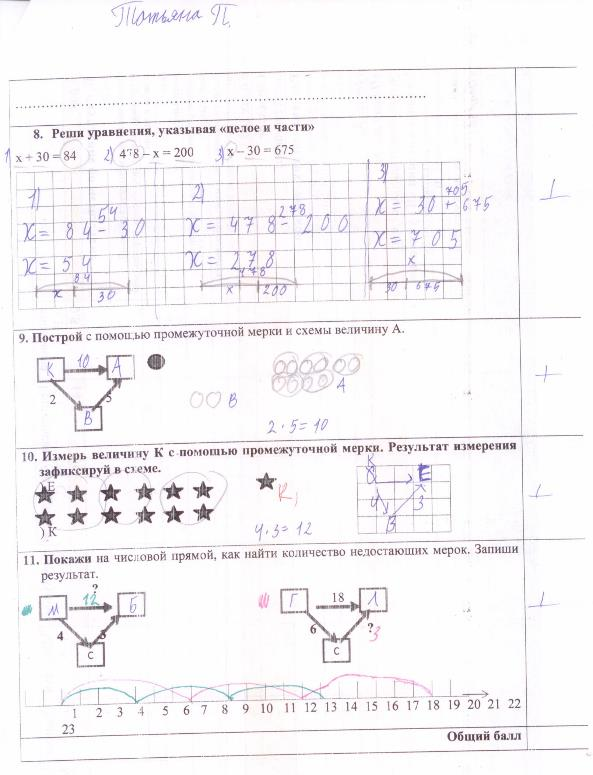 Татьяна П.
8. Реши уравнения, указывая «целое и части»
1) x + 30 = 84 2) 478 – x = 200 3) x – 30 = 675
1) 2) 3)
54 278 705
x = 84 - 30 x = 478 - 200 x = 30 + 675
x = 54 x = 278 x = 705
84 478 x
x 30 x 200 30 675
9. Построй с помощью промежуточной мерки и схемы величину А.
К 10 А
2 5 В А
В
2 · 5 = 10
10. Измерь величину К с помощью промежуточной мерки. Результат измерения
зафиксируй в схеме.
) Е К
Е
К,
4 3
) К 4·3=12 В
11. Покажи на числовой прямой, как найти количество недостающих мерок. Запиши
результат.
?
М 12 Б Г 18 Л
4 3 6 ? 3
С С
1 2 3 4 5 6 7 8 9 10 11 12 13 14 15 16 17 18 19 20 21 22
23
Общий балл